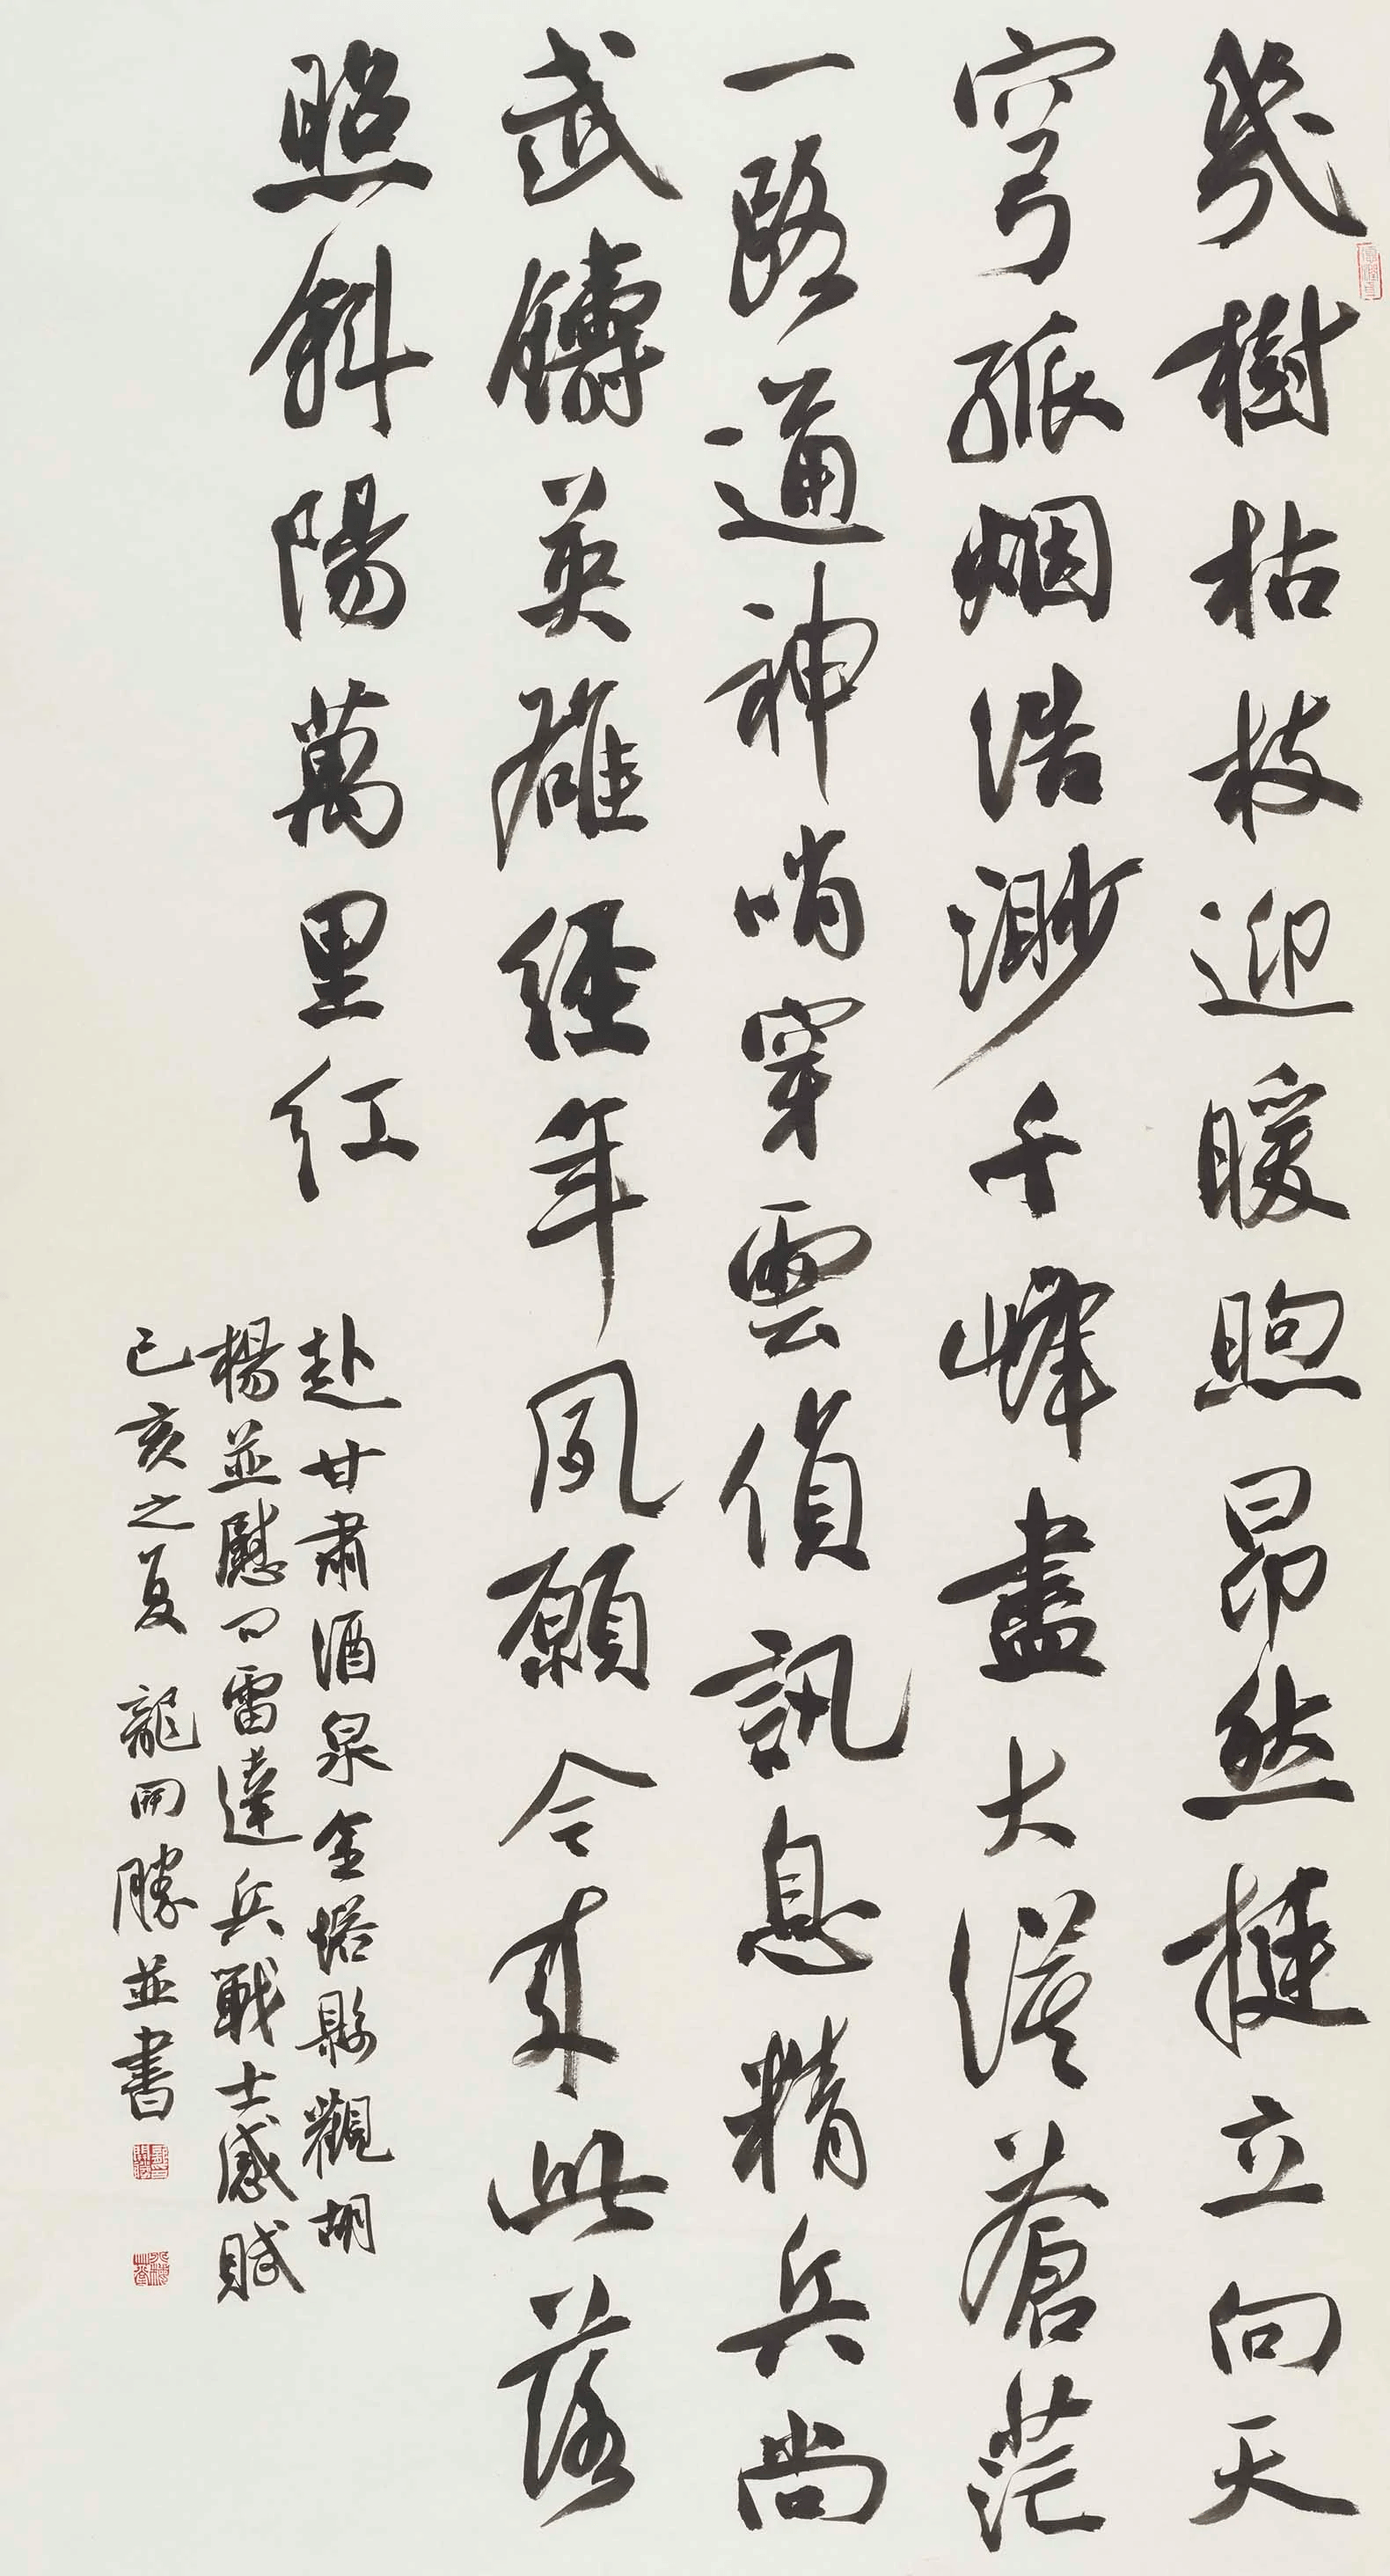 幾樹枯枝迎暖煦昂然挺立向天
穹孤烟浩渺千峰盡大漠蒼茫
一路通神哨穿雲偵訊息精兵尚
武鑄英雄經年夙願今來此落
照斜陽萬里紅
赴甘肅酒泉金塔縣觀胡
楊並慰問雷達兵戰士感賦
己亥之夏 龍開勝並書